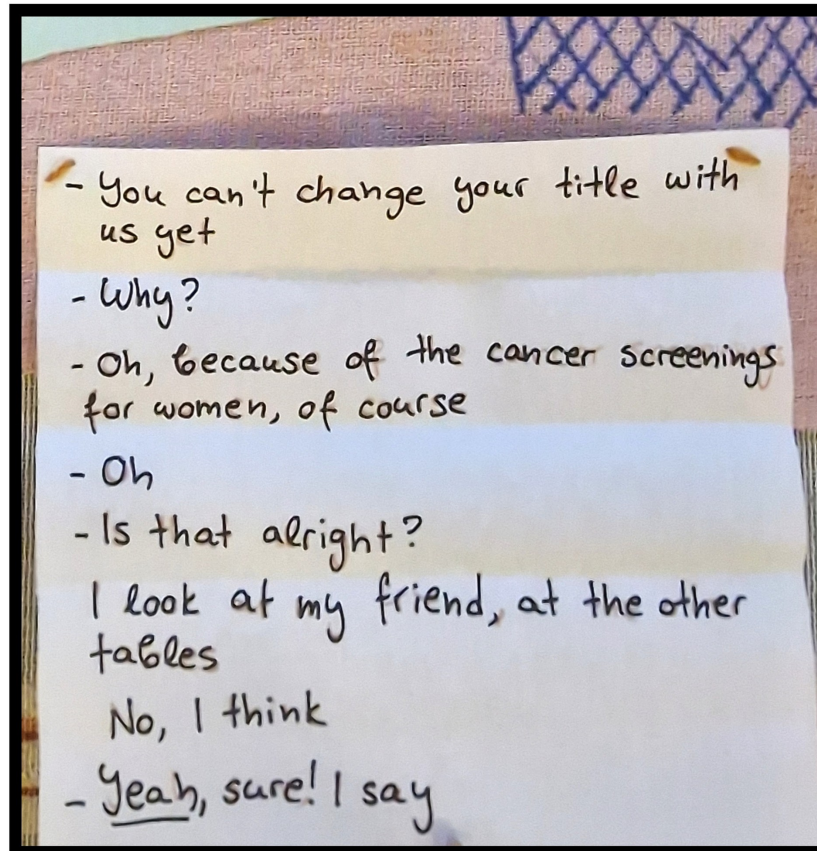 - You can't change your title with
us yet
- Why?
- Oh, because of the cancer screenings
for women, of course
- Oh
- Is that alright?
I look at my friend, at the other
tables
No, I think
- Yeah, sure! I say